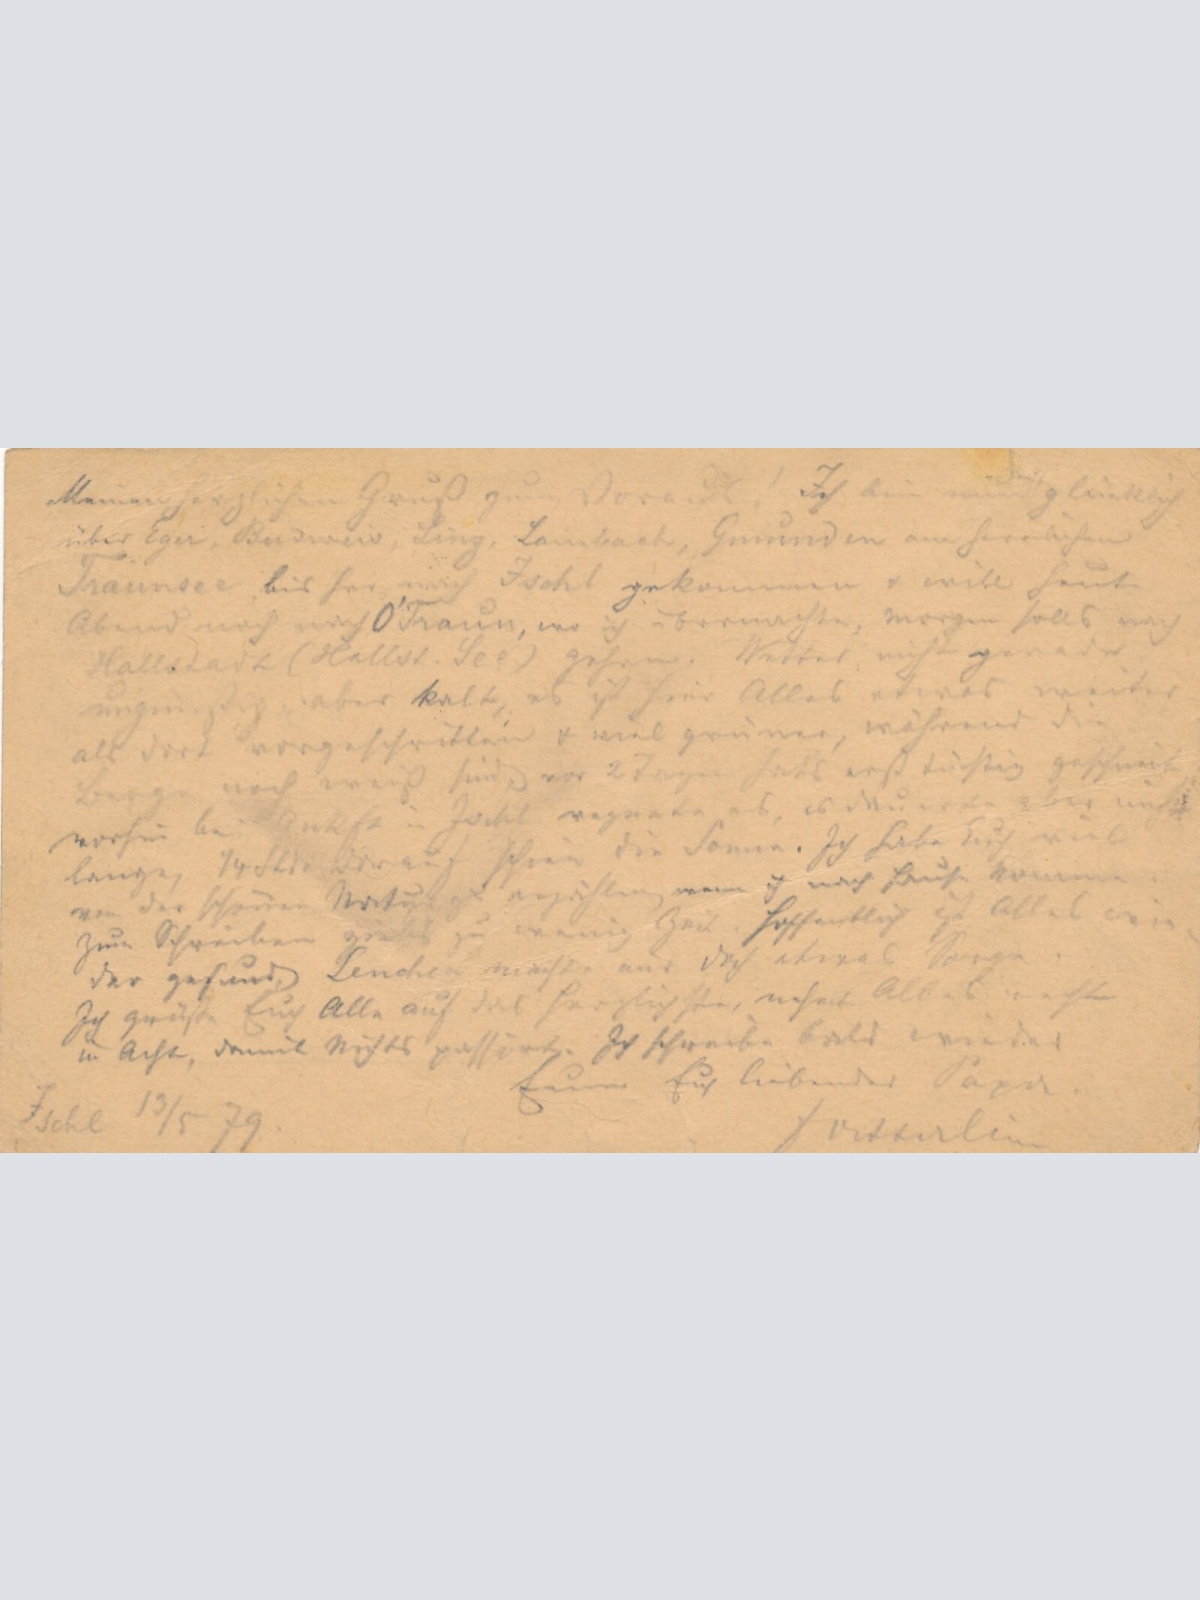 Meinen herzlichen Gruß zum Voraus! Ich bin nun glücklich
über Eger, Budweis, Linz, Lambach, Gmunden am herrlichen
Traunsee bis her nach Ischl gekommen & will heute
Abend noch nach O'Traun, wo ich übernachte, morgen solls nach
Hallstadt (Hallst. See) gehen. Wetter nicht gerade
ungünstig aber kalt, es ist hier Alles etwas weiter
als dort vorgeschritten & viel grüner, während die
Berge noch weiß sind, vor 2 Tagen hats erst tüchtig geschneit
vorhin bei Ankft in Ischl regnete es, es dauerte aber nicht
lange, 1/4 Stde darauf schien die Sonne. Ich habe Euch viel
von der schönen Natur zu erzählen, wenn ich nach Hause komme.
Zum Schreiben giebts zu wenig Zeit. Hoffentlich ist Alles wie
der gesund, Lenchen machte mir doch etwas Sorge.
Ich grüße Euch Alle auf das herzlichste, nehmt Alles recht
in Acht, damit Nichts passirt. Ich schreibe bald wieder
Euer Euch liebender Papa.
Ischl 13/5 79.